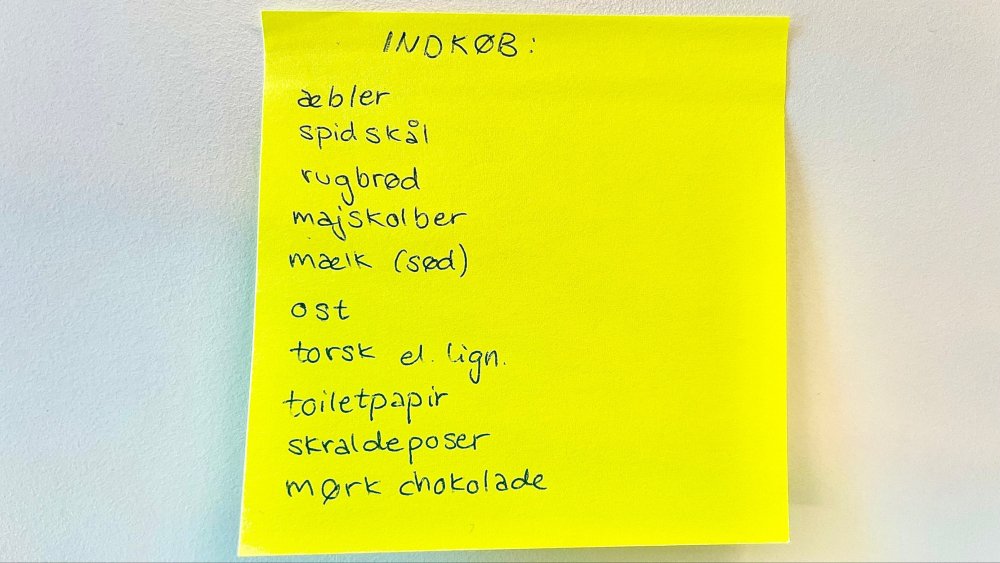 INDKØB:
æbler
spidskål
rugbrød
majskolber
mælk (sød)
ost
torsk el. lign.
toiletpapir
skraldeposer
mørk chokolade